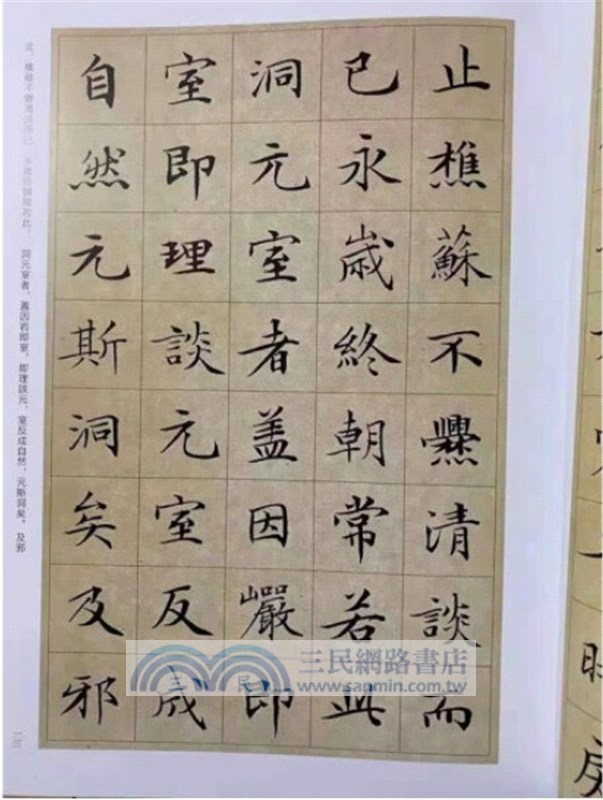 止樵蘇不爨清談而
已永歲終朝常若此
洞元室者盖因巖即
室即理談元室反成
自然元斯洞矣及邪
洞元室者，蓋因岩即室，即理談元，室反成自然，元斯洞矣。及邪
三民網路書店
www.sanmin.com.tw
三
民